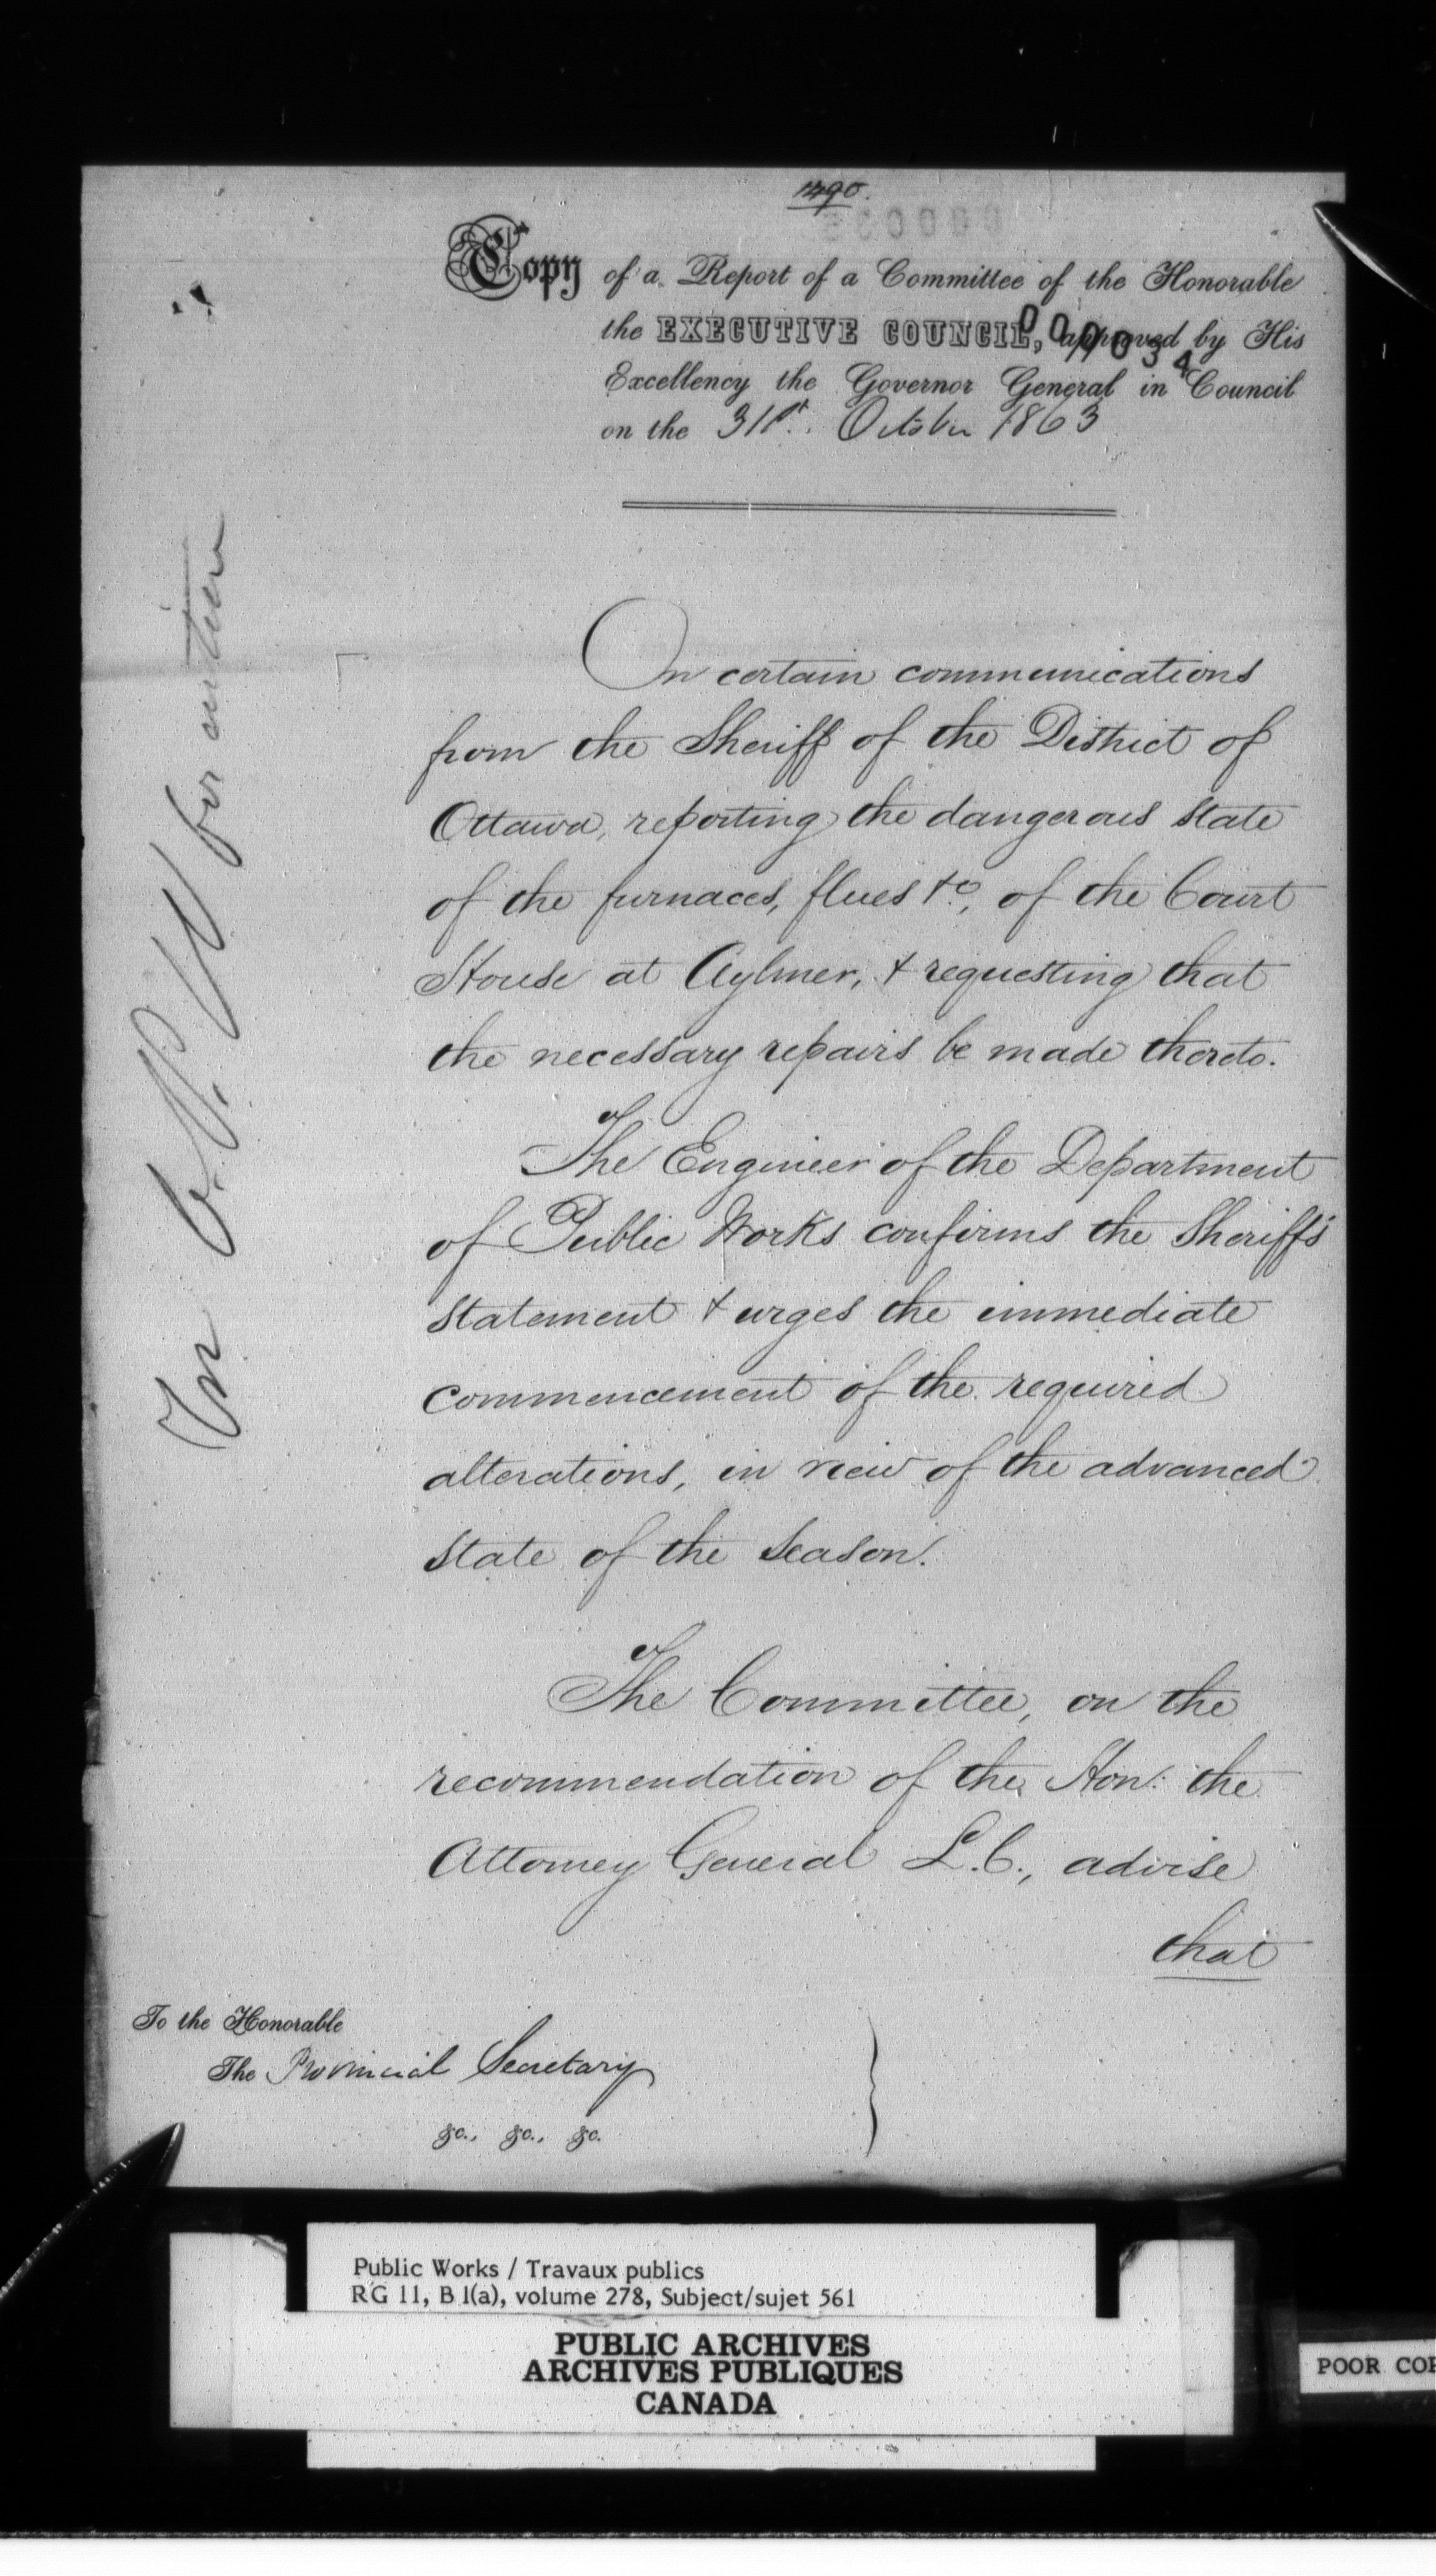 1490.
Copy of a Report of a Committee of the Honorable
the EXECUTIVE COUNCIL, approved by His
000034
Excellency the Governor General in Council
on the 31st. October 1863
On certain communications
from the Sheriff of the District of
Ottawa, reporting the dangerous state
of the furnaces, flues &c, of the Court
House at Aylmer, & requesting that
the necessary repairs be made thereto.
The Engineer of the Department
of Public Works confirms the Sheriff's
statement & urges the immediate
commencement of the required
alterations, in view of the advanced
state of the season.
The Committee, on the
recommendation of the Hon: the
Attorney General L.C., advise
that
To the Honorable
The Provincial Secretary
&c., &c., &c.
for
Public Works / Travaux publics
RG 11, B 1(a), volume 278, Subject/sujet 561
PUBLIC ARCHIVES
ARCHIVES PUBLIQUES
CANADA
POOR COP